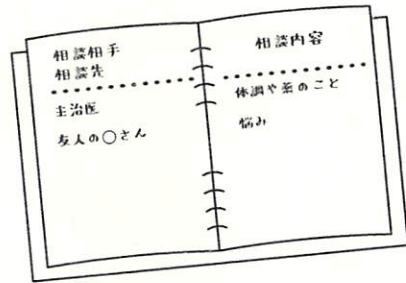 相談相手
相談先
主治医
友人の○さん
相談内容
体調や薬のこと
悩み